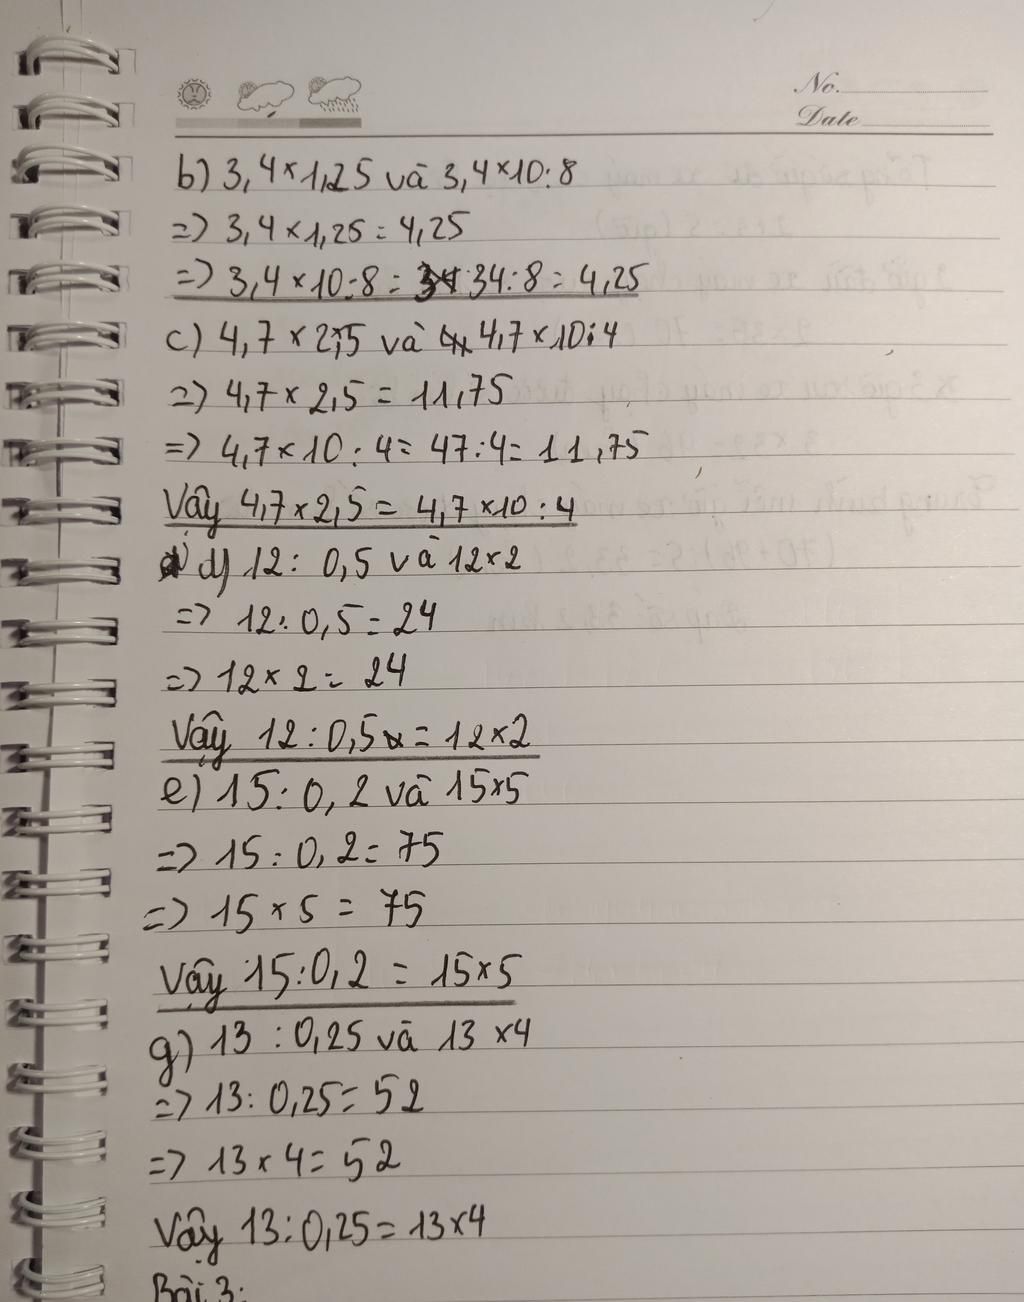 No.
Date
b) 3,4×1,25 và 3,4×10:8
=> 3,4×1,25 = 4,25
=> 3,4×10:8 = 34:8 = 4,25
c) 4,7 × 2,5 và 4,7×10:4
=> 4,7 × 2,5 = 11,75
=> 4,7×10:4 = 47:4 = 11,75
Vậy 4,7×2,5 = 4,7×10:4
d) 12: 0,5 và 12×2
=> 12: 0,5 = 24
=> 12×2 = 24
Vậy 12:0,5 = 12×2
e) 15: 0,2 và 15×5
=> 15: 0,2 = 75
=> 15×5 = 75
Vậy 15:0,2 = 15×5
g) 13:0,25 và 13×4
=> 13: 0,25 = 52
=> 13×4 = 52
Vậy 13:0,25 = 13×4
Bài 3: